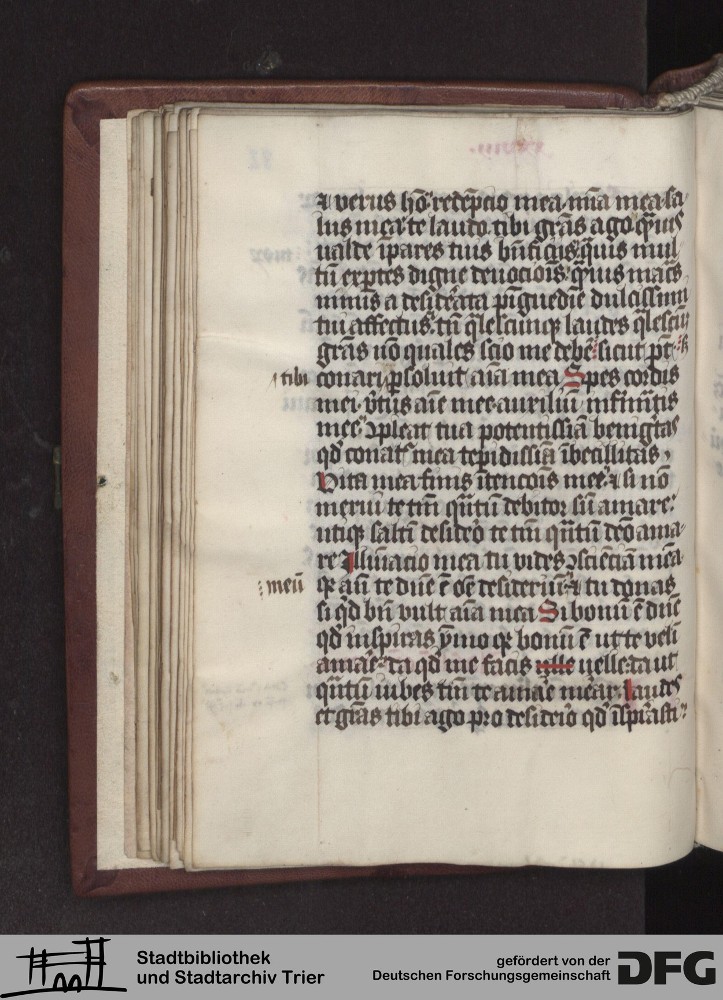 ⁊ verus hō redēpcio mea mīa mea sa
lus mea te laudo tibi grās ago quius
valde īpares tuis bn̄ficijs quis mul
tū expertes digne deuocioīs quius macr̄s
minus a desiderata pīguedīe dulcissimi
tui affectus tn̄ qlescūnqꝫ laudes qlescūqꝫ
grās nō quales scio me debē sicut pōt
tibi conari psoluit aīa mea Spes cordis
mei v̄tus aīe mee auxiliū infirmitīs
mee ↄpleat tua potentissīa benigtas
qd̄ conat mea tepidissīa ībecillitas
Vita mea finis ītencoīs mee ⁊ si nō
merui te tm̄ qn̄tū debitor sū amare
utiqꝫ saltī desidero te tm̄ qn̄tū deō ama
re Illuīacio mea tu vides ↄsciēciā meā
meū qꝫ an̄ te dn̄e ē oē desideriū ⁊ tu donas
si qd bn̄ vult aīa mea Si bonū ē dn̄e
qd inspiras ymo qꝫ bonū ē ut te veli
amare da qd me facis velle da ut
qn̄tū iubes tm̄ te amare mear laudes
et grās tibi ago pro desiderio qd īspirasti
Stadtbibliothek
und Stadtarchiv Trier
gefördert von der
Deutschen Forschungsgemeinschaft
DFG